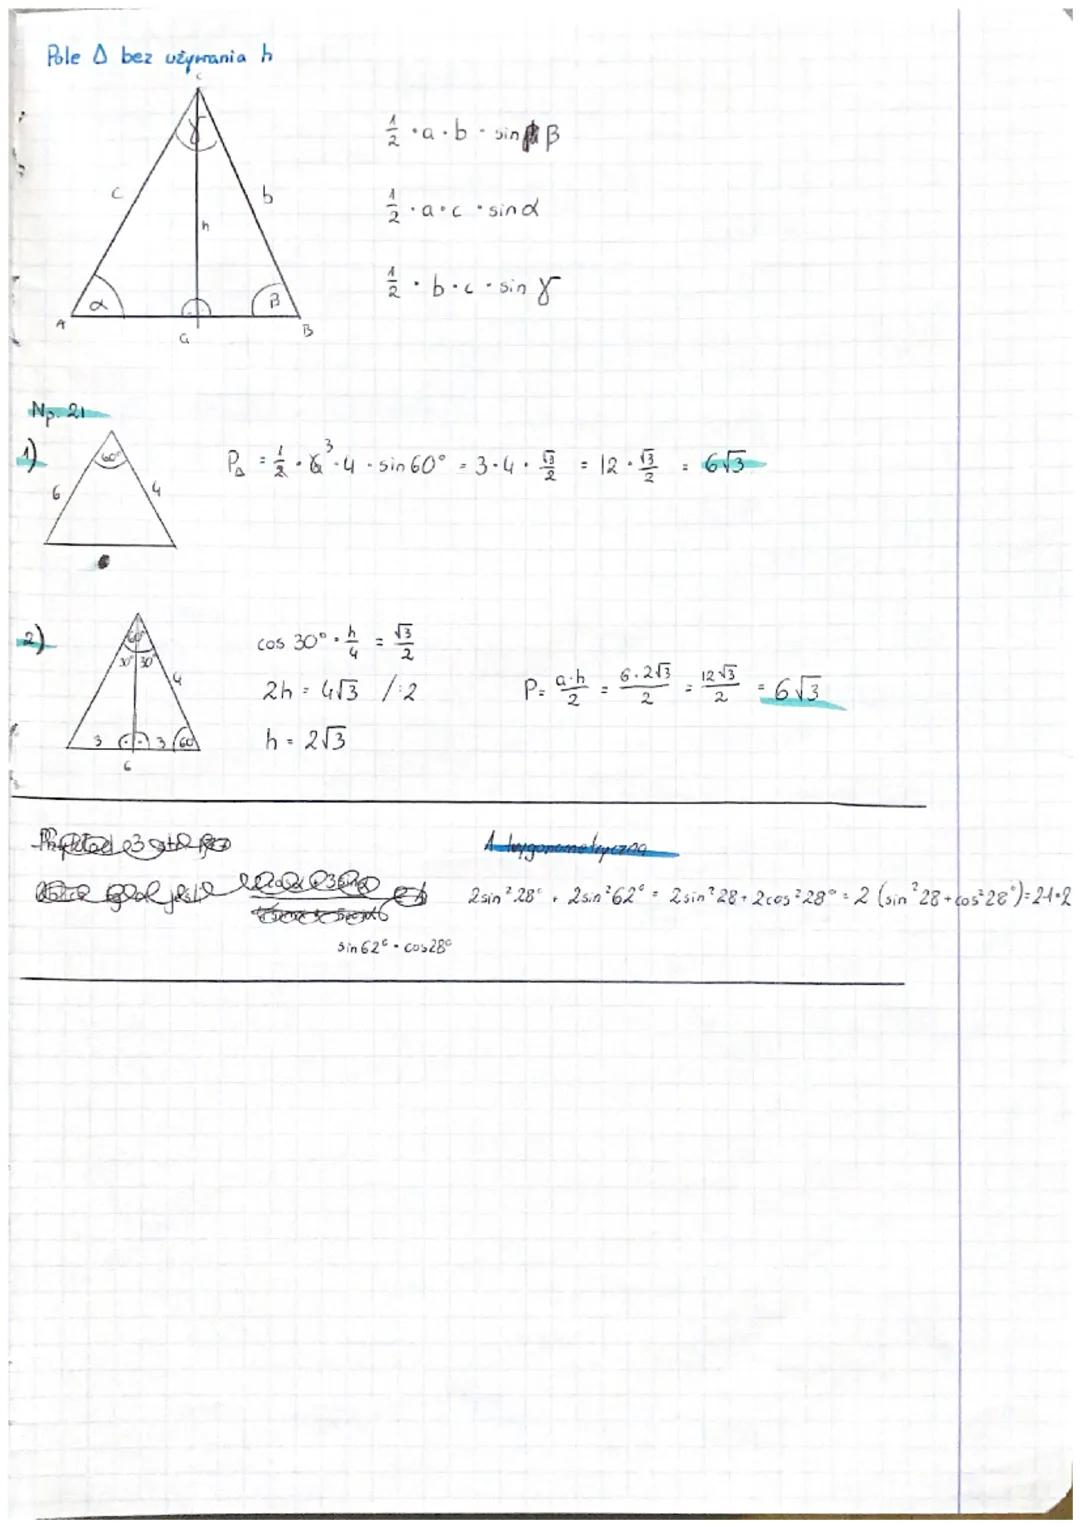 Pole Δ bez używania h
C
γ
c
b
h
α
β
A
B
a
1/2 · a · b · sin β
1/2 · a · c · sin α
1/2 · b · c · sin γ
Np. 21
1)
60°
6
4
P△ = 1/2 · 6³ · 4 · sin 60° = 3 · 4 · √3/2 = 12 · √3/2 = 6√3
2)
60°
30° 30°
4
3
3
60°
6
cos 30° = h/4 = √3/2
2h = 4√3 /:2
h = 2√3
P = a·h/2 = 6·2√3/2 = 12√3/2 = 6√3
1 trygonometryczna
2sin²28° + 2sin²62° = 2sin²28 + 2cos²28° = 2 (sin²28 + cos²28°) = 2·1=2
sin62° = cos28°